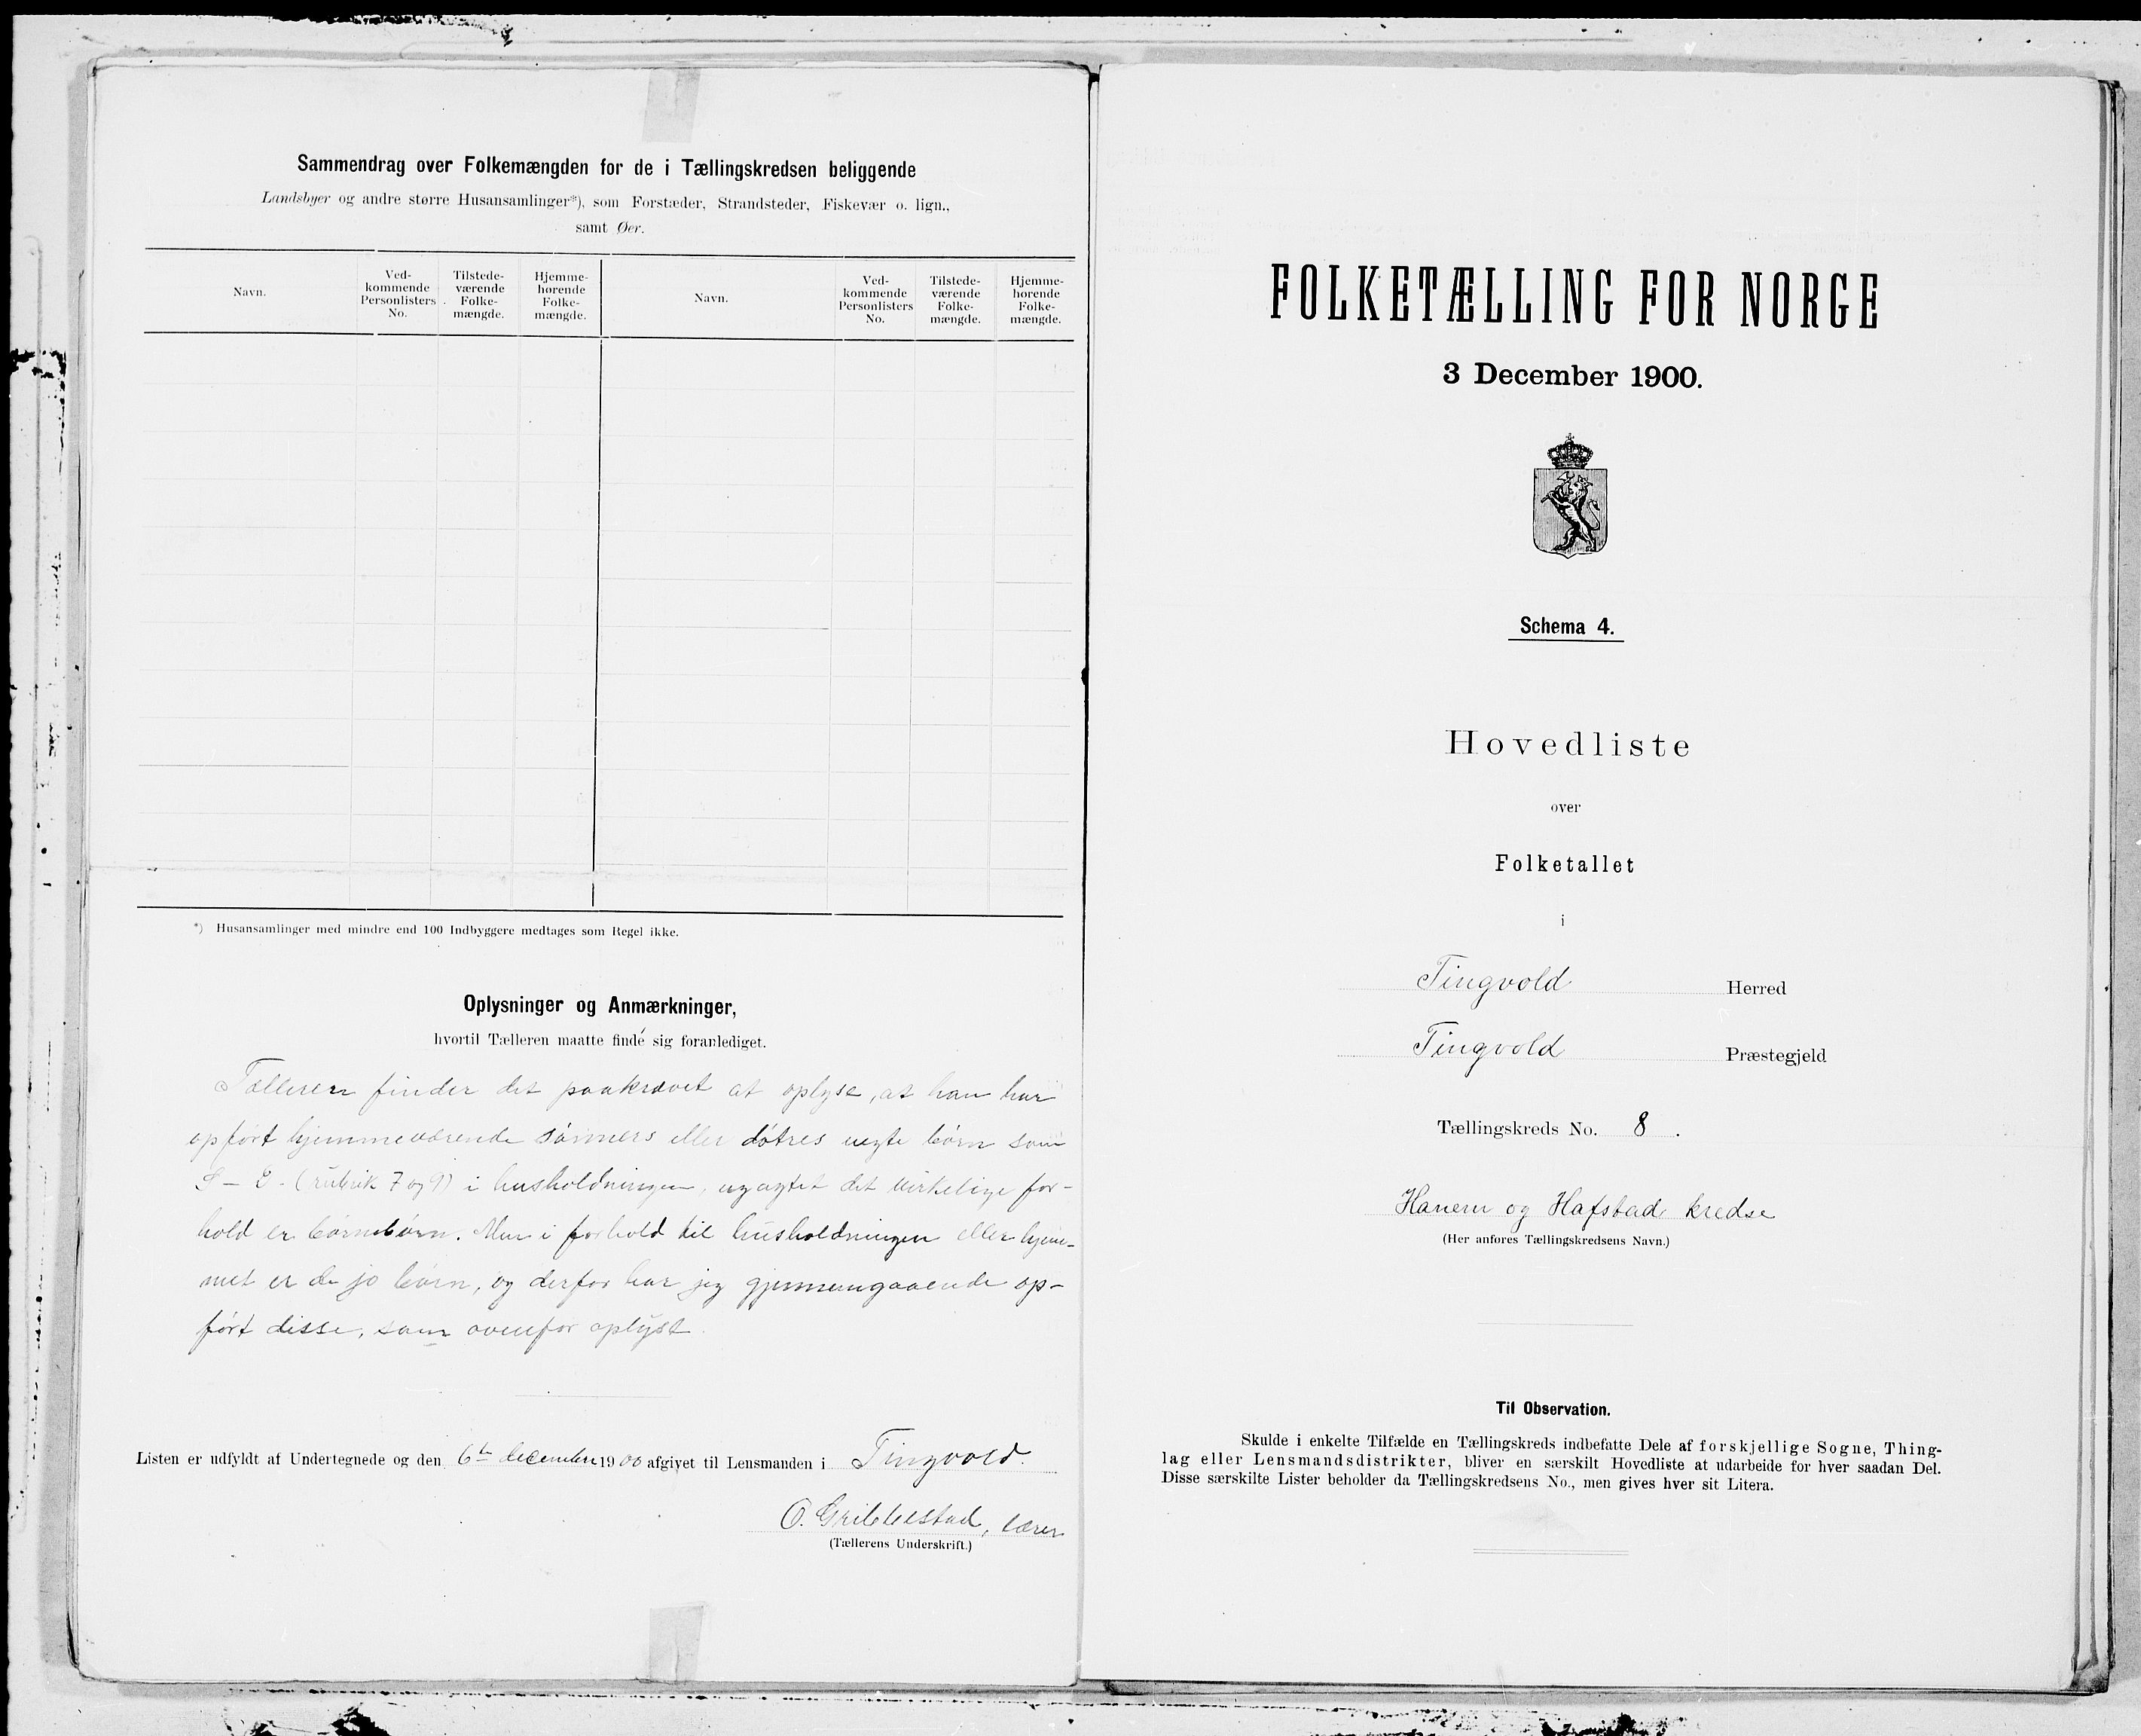 Sammendrag over Folkemængden for de i Tællingskredsen beliggende
Landsbyer og andre større Husansamlinger*), som Forstæder, Strandsteder, Fiskevær o. lign.,
samt Øer.
Navn.
Ved-
kommende
Personlisters
No.
Tilstede-
værende
Folke-
mængde.
Hjemme-
hørende
Folke-
mængde.
Navn.
Ved-
kommende
Personlisters
No.
Tilstede-
værende
Folke-
mængde.
Hjemme-
hørende
Folke-
mængde.
*) Husansamlinger med mindre end 100 Indbyggere medtages som Regel ikke.
Oplysninger og Anmærkninger,
hvortil Tælleren maatte finde sig foranlediget.
Tælleren finder det paakrævet at oplyse, at han har
opført hjemmeværende sønners eller døtres uegte børn som
S – D (rubrik 7 og 9) i husholdningen, uagtet det virkelige for-
hold er børnebørn. Men i forhold til husholdningen eller hjem-
met er de jo børn, og derfor har jeg gjennemgaaende op-
ført disse, som ovenfor oplyst.
Listen er udfyldt af Undertegnede og den 6te december 1900 afgivet til Lensmanden i Tingvold.
O. Gribbestad, lærer
(Tællerens Underskrift.)
FOLKETÆLLING FOR NORGE
3 December 1900.
Schema 4.
Hovedliste
over
Folketallet
i
Tingvold Herred
Tingvold Præstegjeld
Tællingskreds No. 8.
Hanem og Hafstad kredse
(Her anføres Tællingskredsens Navn.)
Til Observation.
Skulde i enkelte Tilfælde en Tællingskreds indbefatte Dele af forskjellige Sogne, Thing-
lag eller Lensmandsdistrikter, bliver en særskilt Hovedliste at udarbeide for hver saadan Del.
Disse særskilte Lister beholder da Tællingskredsens No., men gives hver sit Litera.